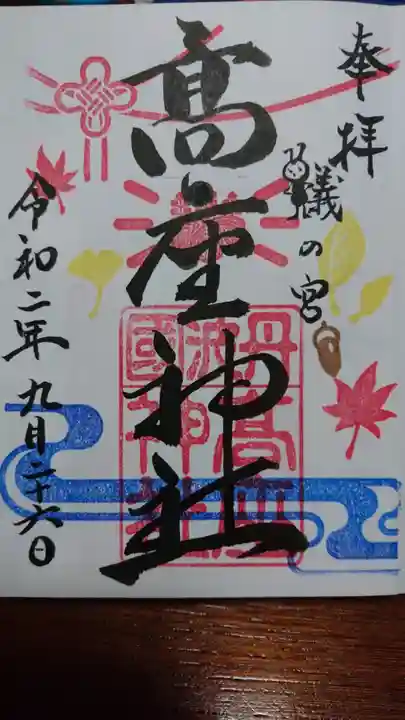 奉拝
蟻の宮
高座神社
丹波國
高座神社
令和二年九月二十六日